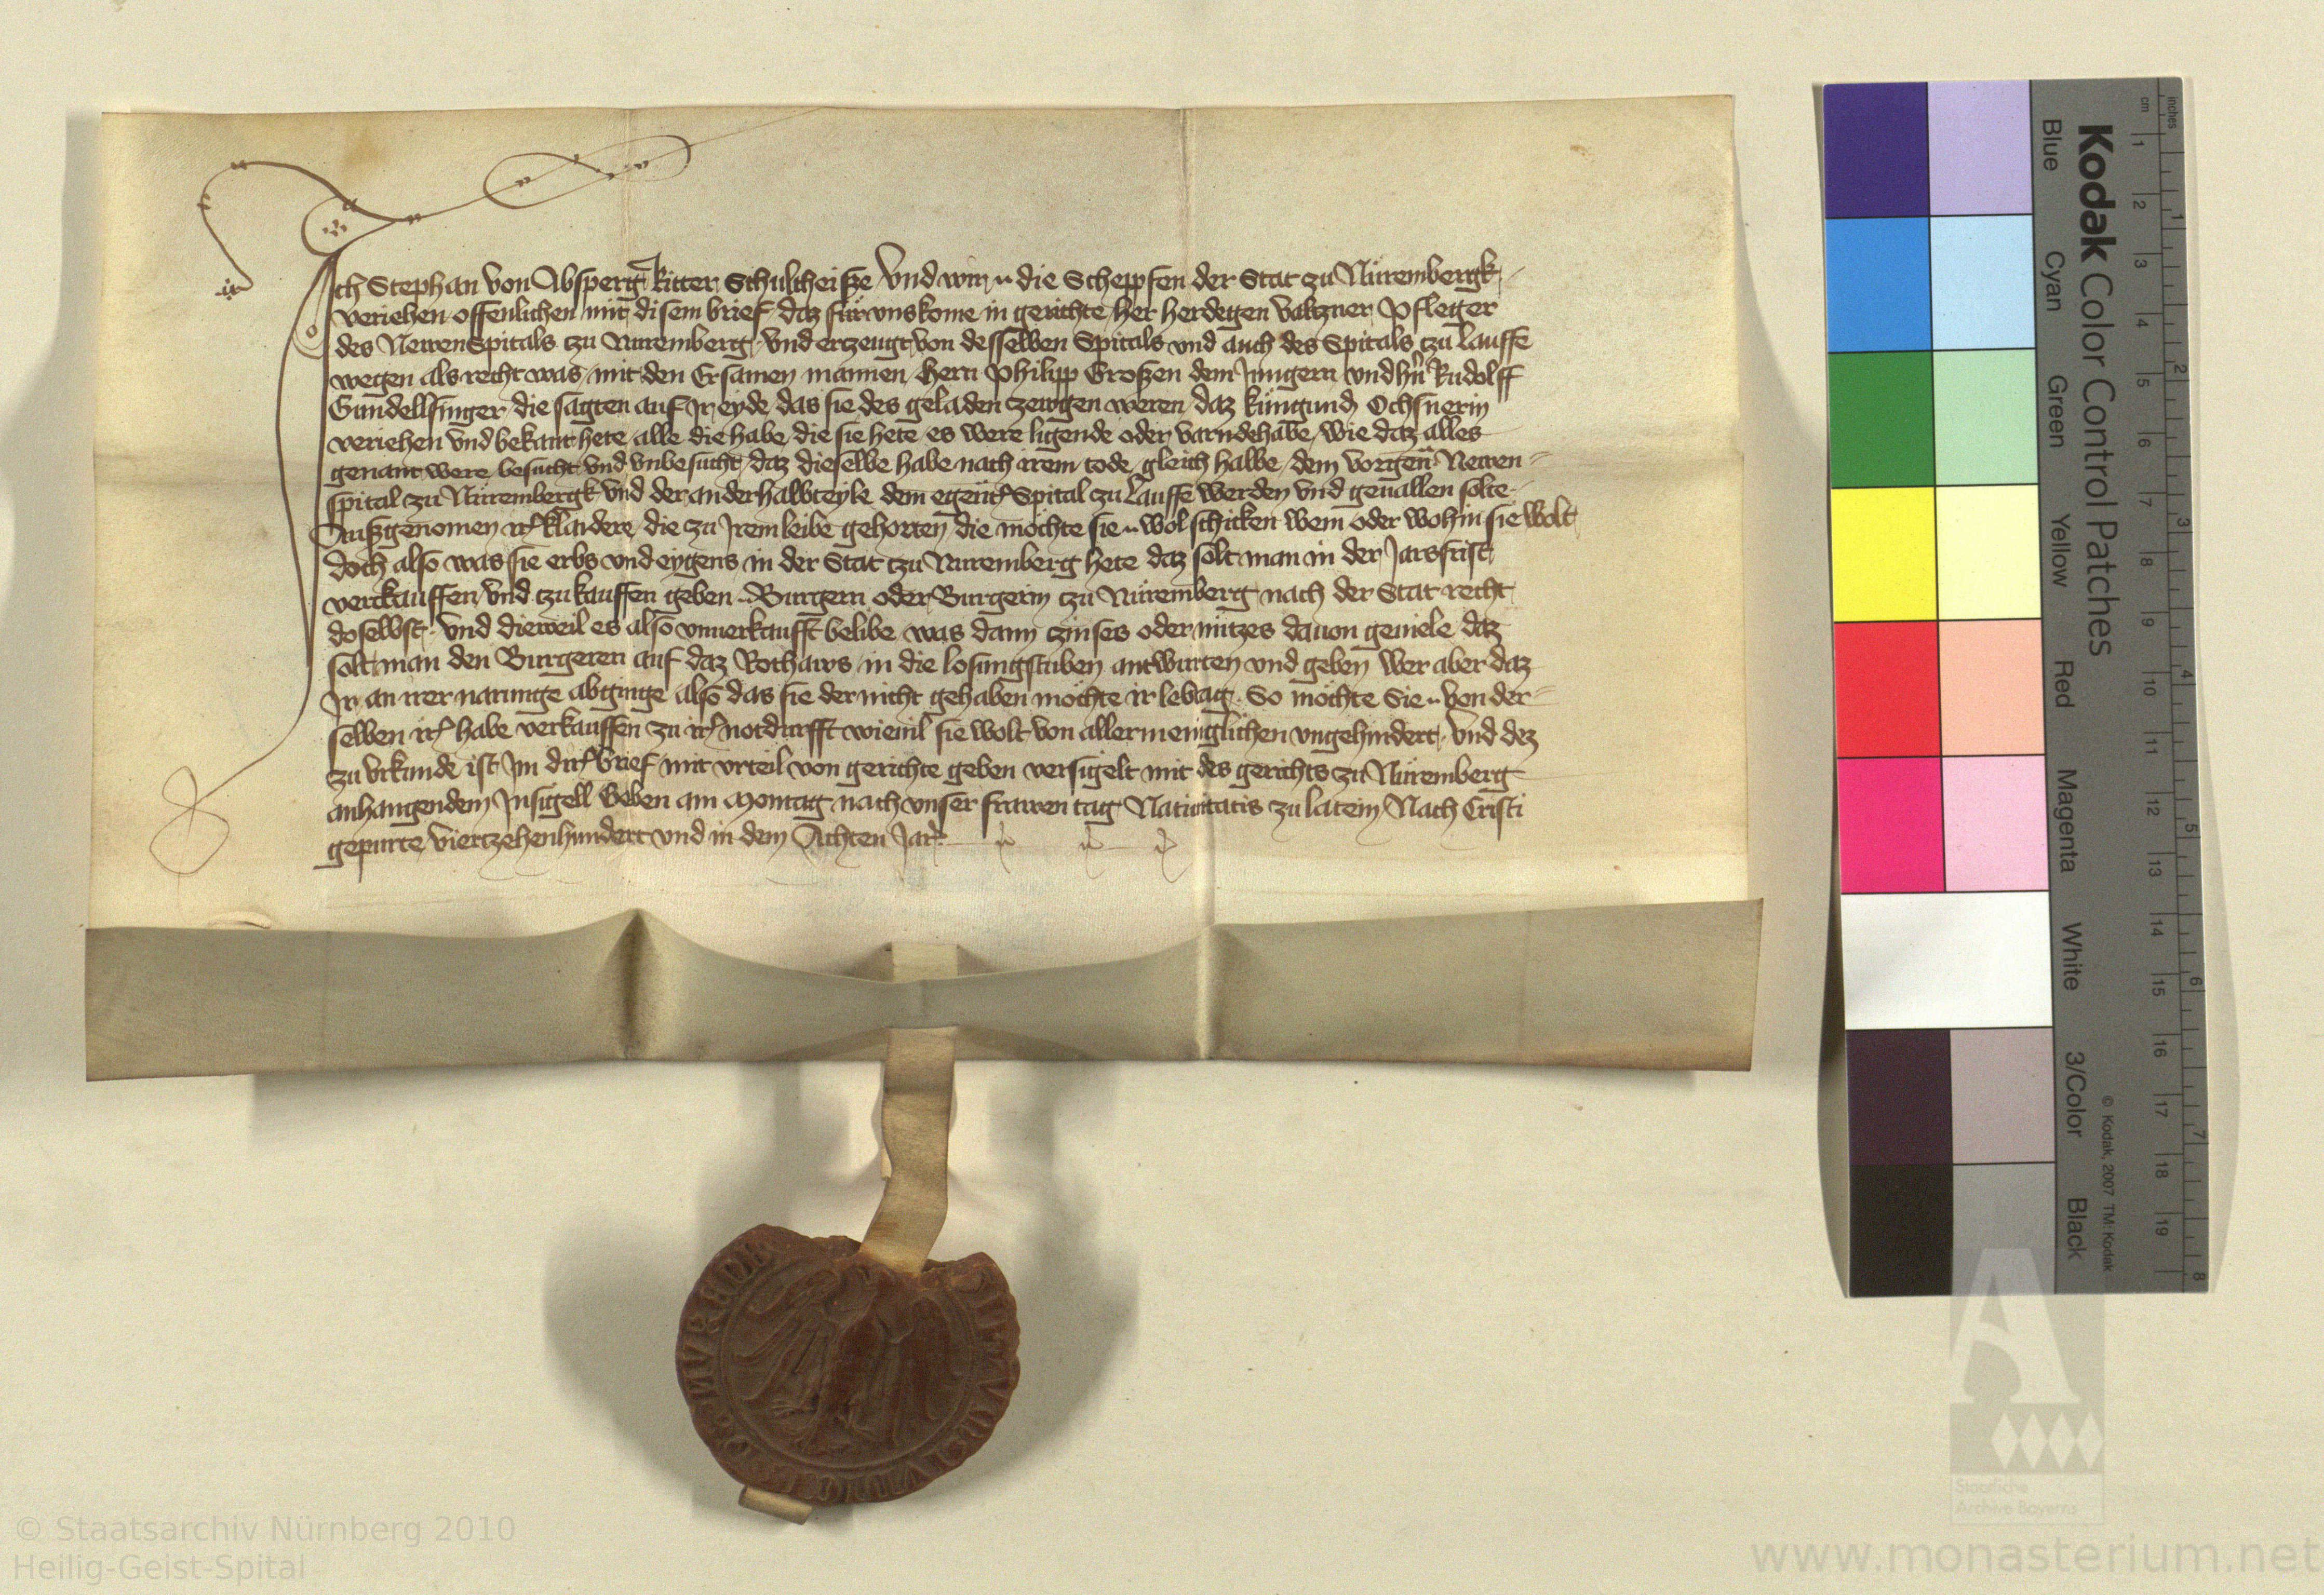 Ich Stephan von Absperg Ritter Schultheisze Vnd wir .. die Scheppfen der Stat zu Nüremberg̃k
veriehen offenlichen mit disem brief daz für vns kome in gerichte her herdegen valtzner Pfleger
des Newen Spitals tzu Nuremberg, vnd ertzeugt von desselben Spitals vnd auch des Spitals tzu Lauffe
wegen als recht was mit den Ersamen mannen hern Philipp Groszen dem Jungern vnd hñ Rudolff
Gundelfinger die sagten auf Jr eyde das sie des geladen tzewgen weren daz küngund Ochsnerin
veriehen vnd bekant hete alle die habe die sie hete es were ligende oder varnde habe wie daz alles
genant were besucht vnd vnbesucht daz dieselbe habe nach irem tode gleich halbe dem vorgeñ Newen-
spital zu Nürembergk vnd der ander halbteyle dem egeñt Spital zu Lauffe werden vnd geuallen solte
Auszgenomen ir kleidere die zu Jrem leibe gehorten die möchte sie .. wol schicken wem oder wohin sie wolt
doch also was sie erbs vnd eygens in der Stat tzu Nuremberg hete daz solt man in der Jarsfrist
verckauffen vnd tzu kauffen geben .. Burgern oder Burgerin tzu Nüremberg nach der Stat recht
doselbst. vnd dieweil es also vnuerkaufft belibe was dann tzinses oder nutzes dauon geuiele daz
solt man den Burgeren auf daz Rothaws in die losungstuben antwurten vnd geben wer aber daz
Jr an irer narunge abginge also das sie der nicht gehaben möchte ir lebtag. So möchte Sie .. von der-
selben ir habe verkauffen zu ir notdurfft wieuil sie wolt von allermeniglichen vngehindert. vnd dez
zu vrkunde ist Jm dir brief mit vrteil von gerichte geben versigelt mit des gerichts zu Nüremberg
anhangendem Jnsigell Geben am Montag nach vnser frawen tag Natiuitatis zu latein Nach Cristi
gepurte viertzehenhundert vnd in dem Achten Jar.
Kodak Color Control Patches
Blue Cyan Green Yellow Red Magenta White 3/Color Black
© Kodak, 2007 TM: Kodak
inches 1 2 3 4 5 6 7 8
cm 1 2 3 4 5 6 7 8 9 10 11 12 13 14 15 16 17 18 19
Staatliche
Archive Bayerns
© Staatsarchiv Nürnberg 2010
Heilig-Geist-Spital
www.monasterium.net